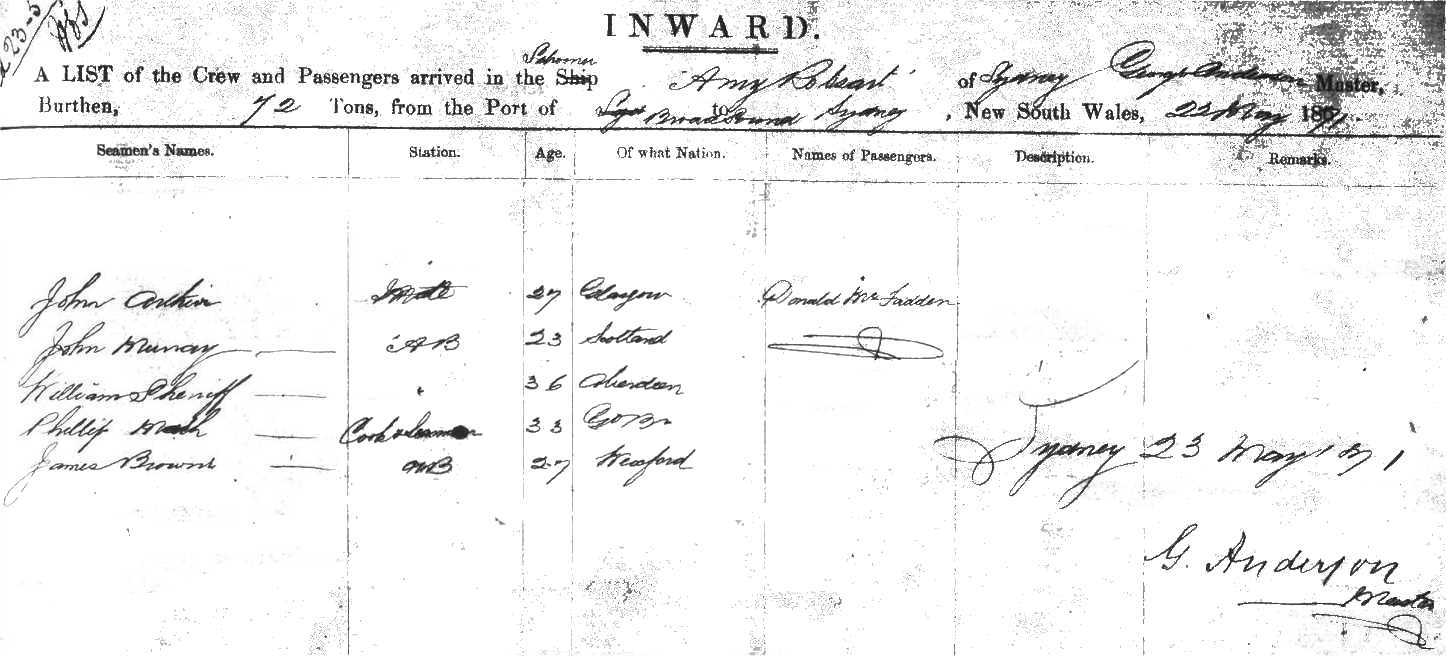 23-5
INWARD.
Schooner
A LIST of the Crew and Passengers arrived in the Ship "Amy Robsart" of Sydney George Anderson Master,
Burthen, 72 Tons, from the Port of Broad Sound to Sydney, New South Wales, 22 May 1871
Seamen's Names. Station. Age. Of what Nation. Names of Passengers. Description. Remarks.
John Mate 27 Glasgow Donald McFadden
John Murray AB 23 Scotland
William Sheriff " 36 Aberdeen
Phillip Cook & Seaman 33
James Brown AB 27 Wexford
Sydney 23 May 1871
G. Anderson
Master